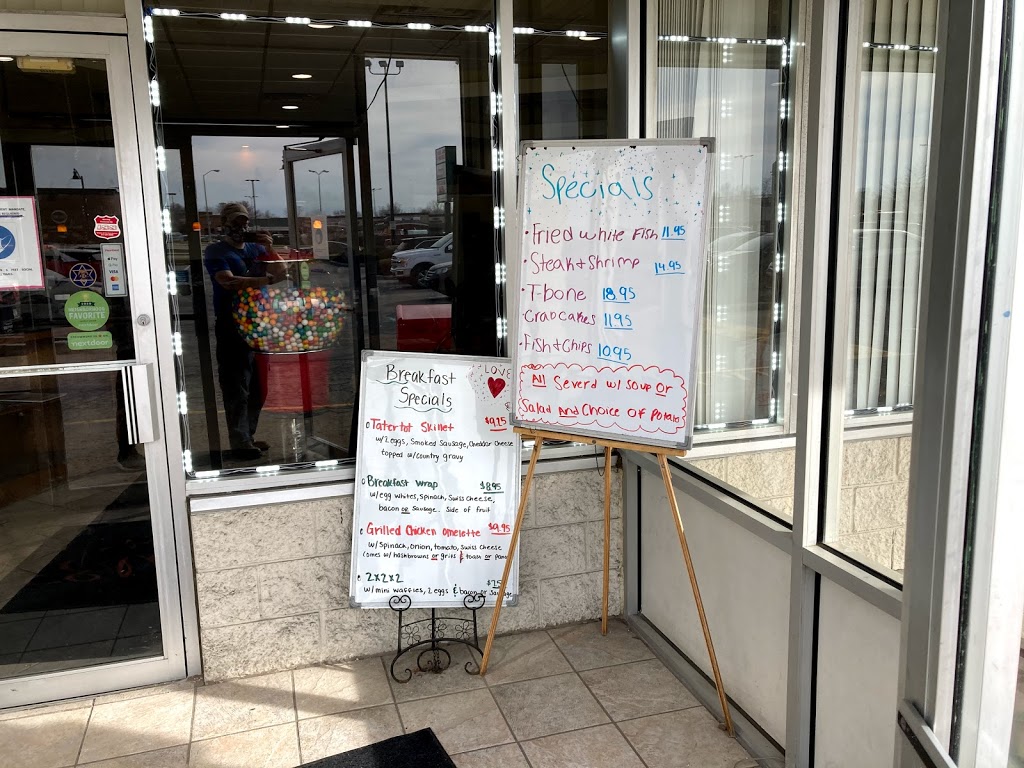 Specials
• Fried white Fish 11.95
• Steak & Shrimp 14.95
• T-bone 18.95
• Crab cakes 11.95
• Fish & Chips 10.95
All Severd w/ Soup Or
Salad And Choice of Potato
Breakfast
Specials
LOVE
Tatertot Skillet $9.25
w/2 eggs, Smoked Sausage, Cheddar Cheese
topped w/country gravy
Breakfast wrap $8.95
w/egg whites, Spinach, Swiss Cheese,
bacon or Sausage. Side of fruit
Grilled Chicken omelette $9.95
w/Spinach, onion, tomato, Swiss Cheese
Comes w/ hashbrowns or grits & toast or
2x2x2
w/mini waffles, 2 eggs & bacon or Sausage
FAVORITE
nextdoor
Pay
VISA